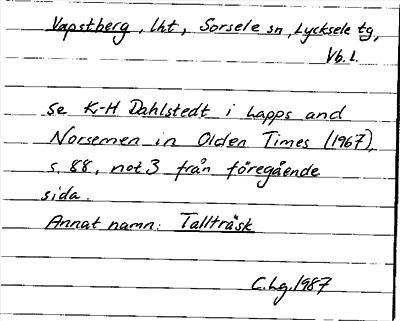 Vapstberg, lht, Sorsele sn, Lycksele tg,
Vb. l.
se K-H Dahlstedt i Lapps and
Norsemen in Olden Times (1967),
s. 88, not 3 från föregående
sida.
Annat namn: Tallträsk
C.Lg. 1987